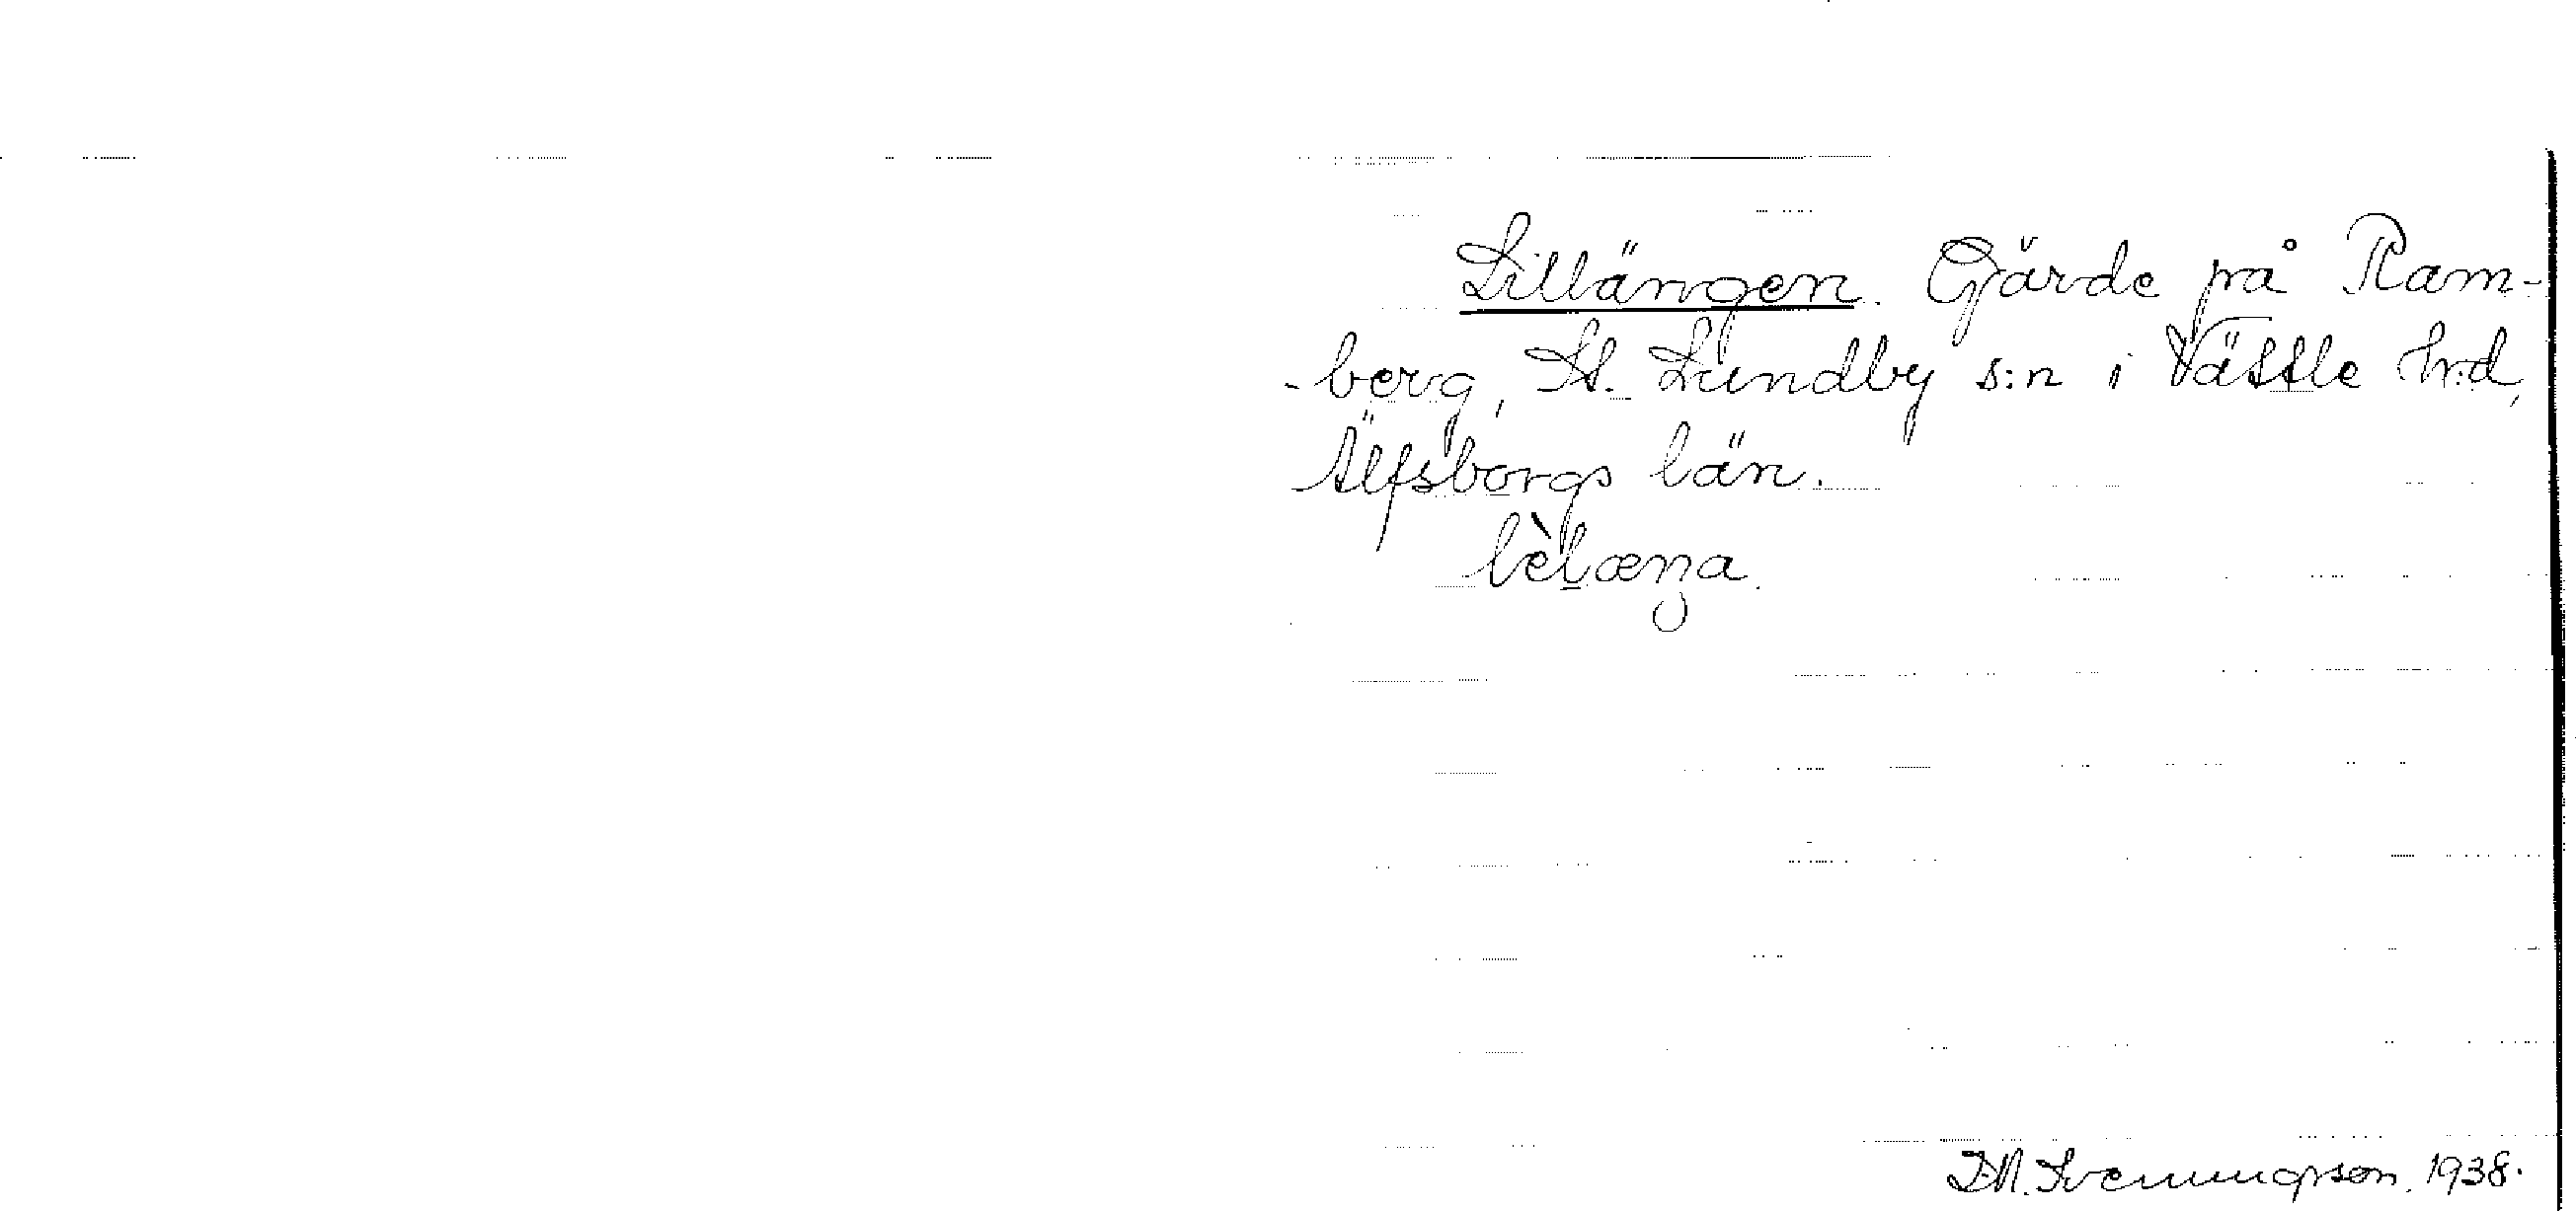 Lillängen. Gärde på Ram-
-berg, St. Lundby s:n i Vättle h:d,
Älfsborgs län.
lèlæŋa.
Svenungsson. 1938.